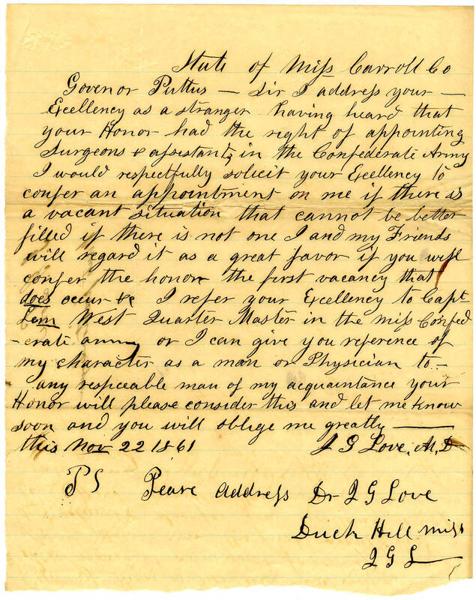 State of Miss Carroll Co
Govenor Puttus — Sir I address your —
Excellency as a stranger having heard that
your Honor had the right of appointing
Surgeons & assistants in the Confederate Army
I would respectfully solicit your Excellency to
confer an appointment on me if there is
a vacant situation that cannot be better
filled if there is not one I and my Friends
will regard it as a great favor if you will
confer the honor the first vacancy that
does occur &c I refer your Excellency to Capt
Lem West Quarter Master in the miss Confed
-crate army or I can give you reference of
my character as a man or Physician to —
any respecable man of my acquaintance your
Honor will please consider this and let me know
soon and you will oblege me greatly —
this Nov 22 1861 J G Love, M, D
PS Peare address Dr J G Love
Duck Hill Miss
J G L